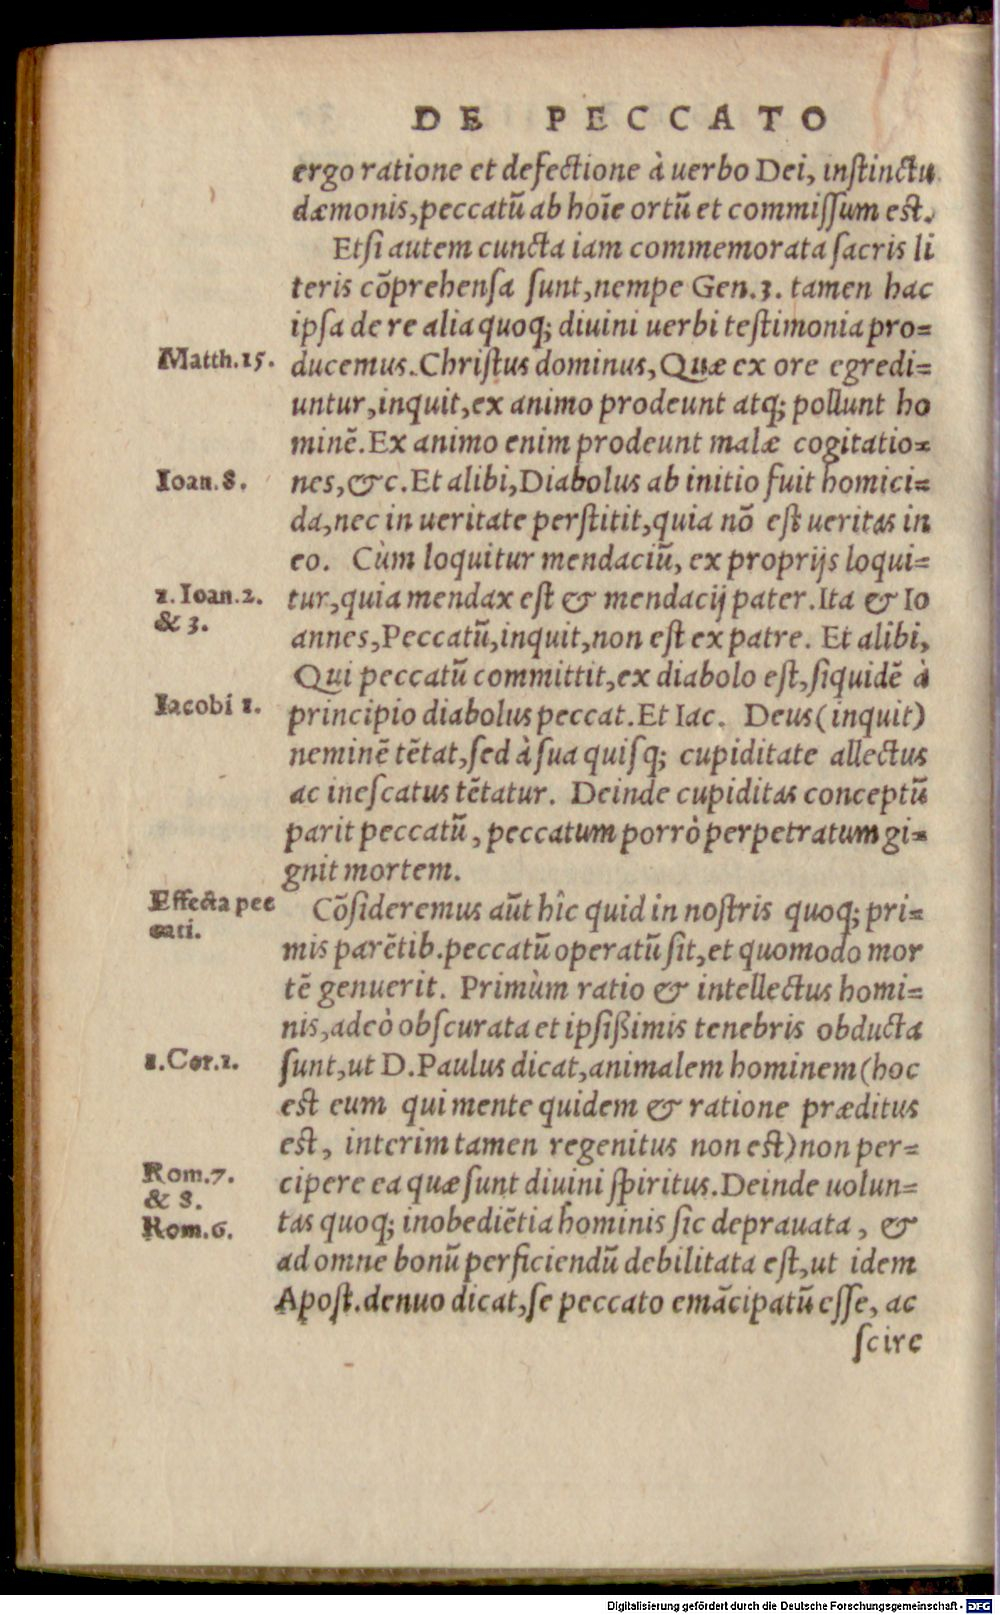 DE PECCATO
ergo ratione et defectione à uerbo Dei, instinctu
dæmonis, peccatũ ab hoĩe ortũ et commissum est.
Etsi autem cuncta iam commemorata sacris li
teris cõprehensa sunt, nempe Gen.3. tamen hac
ipsa de re alia quoq; diuini uerbi testimonia pro=
Matth.15.
ducemus. Christus dominus, Quæ ex ore egredi=
untur, inquit, ex animo prodeunt atq; pollunt ho
minẽ. Ex animo enim prodeunt malæ cogitatio=
Ioan.8.
nes, &c. Et alibi, Diabolus ab initio fuit homici=
da, nec in ueritate perstitit, quia nõ est ueritas in
eo. Cùm loquitur mendaciũ, ex proprijs loqui=
1.Ioan.2.
& 3.
tur, quia mendax est & mendacij pater. Ita & Io
annes, Peccatũ, inquit, non est ex patre. Et alibi,
Qui peccatũ committit, ex diabolo est, siquidẽ à
Iacobi 1.
principio diabolus peccat. Et Iac. Deus (inquit)
neminẽ tẽtat, sed à sua quisq; cupiditate allectus
ac inescatus tẽtatur. Deinde cupiditas conceptũ
parit peccatũ, peccatum porrò perpetratum gi=
gnit mortem.
Effecta pec
cati.
Cõsideremus aũt hîc quid in nostris quoq; pri=
mis parẽtib. peccatũ operatũ sit, et quomodo mor
tẽ genuerit. Primùm ratio & intellectus homi=
nis, adeò obscurata et ipsißimis tenebris obducta
1.Cor.2.
sunt, ut D. Paulus dicat, animalem hominem (hoc
est eum qui mente quidem & ratione præditus
est, interim tamen regenitus non est) non per=
Rom.7.
& 8.
Rom.6.
cipere ea quæ sunt diuini spiritus. Deinde uolun=
tas quoq; inobediẽtia hominis sic deprauata, &
ad omne bonũ perficiendũ debilitata est, ut idem
Apost. denuo dicat, se peccato emãcipatũ esse, ac
scire
Digitalisierung gefördert durch die Deutsche Forschungsgemeinschaft - DFG